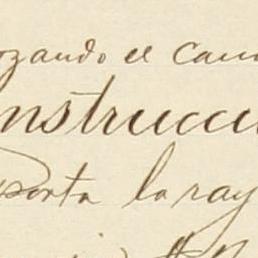 ozando el cam
nstrucci
porta la ray